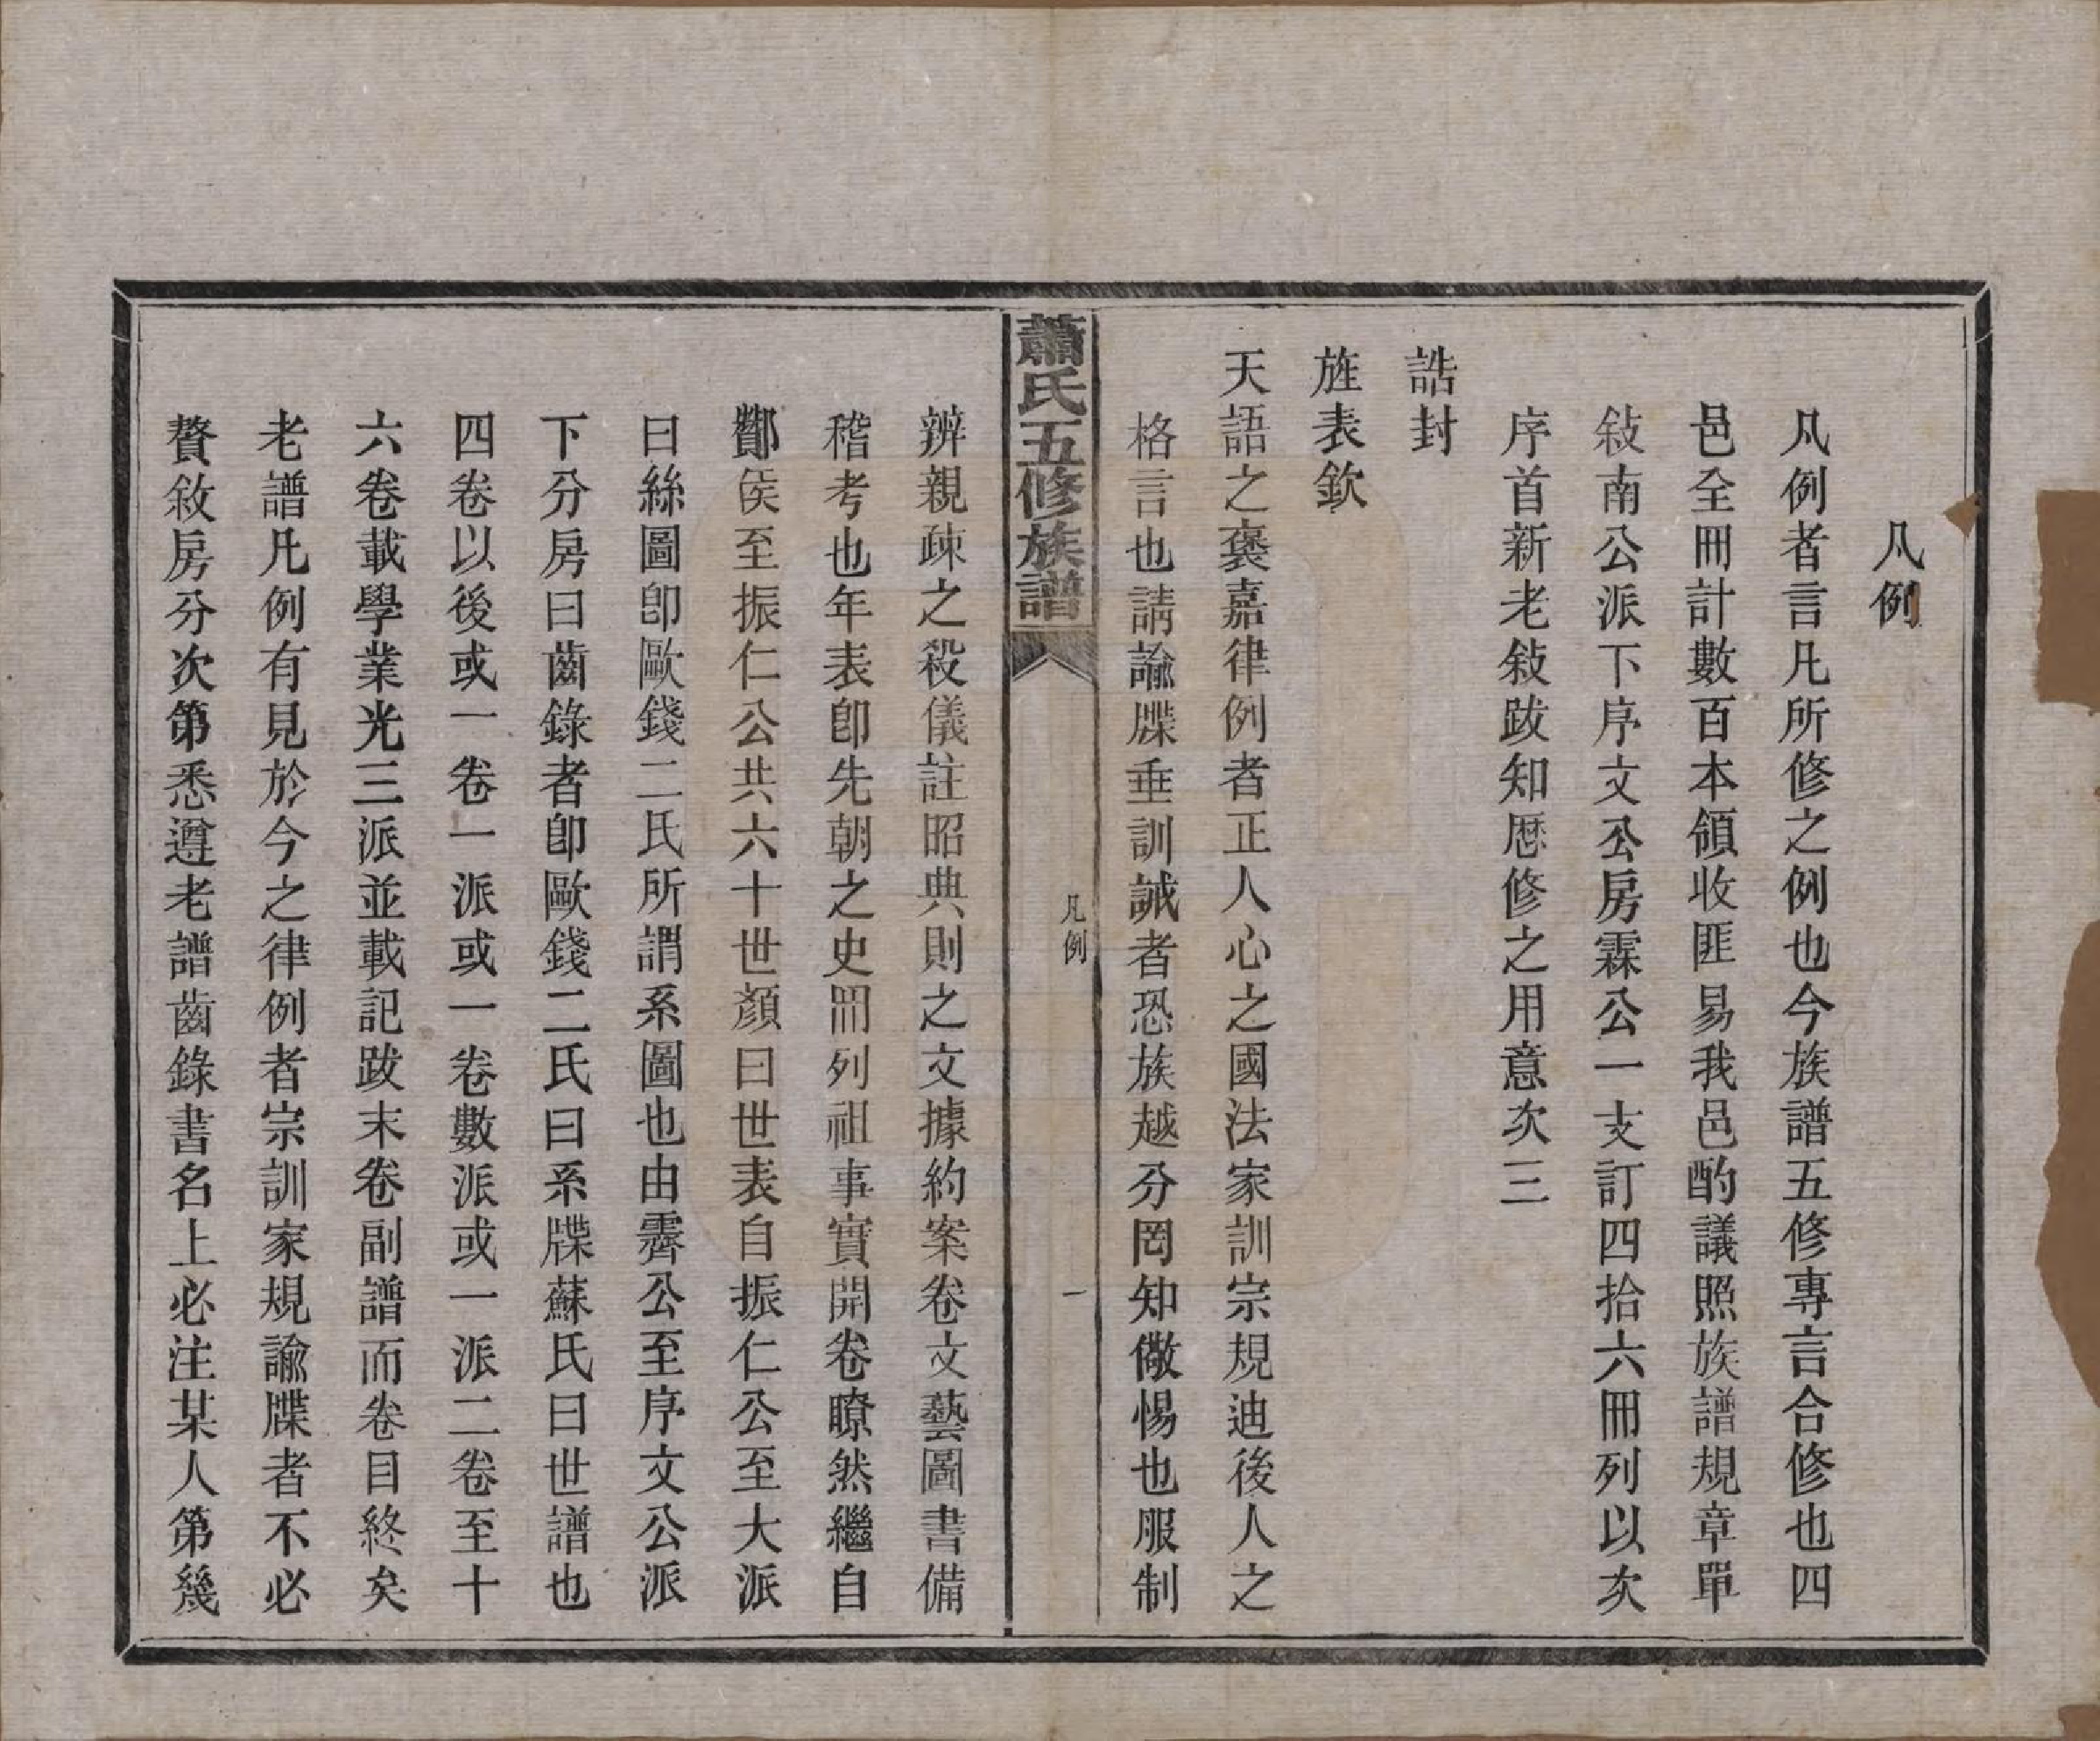 凡例
凡例者言凡所修之例也今族譜五修專言合修也四
邑全冊計數百本領收匪易我邑酌議照族譜規章單
敍南公派下序文公房霖公一支訂四拾六冊列以次
序首新老敍跋知歷修之用意次三
誥封
旌表欽
天語之褒嘉律例者正人心之國法家訓宗規迪後人之
格言也請諭牒垂訓誡者恐族越分罔知儆惕也服制
蕭氏五修族譜
凡例
一
辨親疎之殺儀註昭典則之文據約案卷文藝圖書備
稽考也年表卽先朝之史冊列祖事實開卷瞭然繼自
酇侯至振仁公共六十世顏曰世表自振仁公至大派
曰絲圖卽歐錢二氏所謂系圖也由霽公至序文公派
下分房曰齒錄者卽歐錢二氏曰系牒蘇氏曰世譜也
四卷以後或一卷一派或一卷數派或一派二卷至十
六卷載學業光三派並載記跋末卷副譜而卷目終矣
老譜凡例有見於今之律例者宗訓家規諭牒者不必
贅敘房分次第悉遵老譜齒錄書名上必注某人第幾